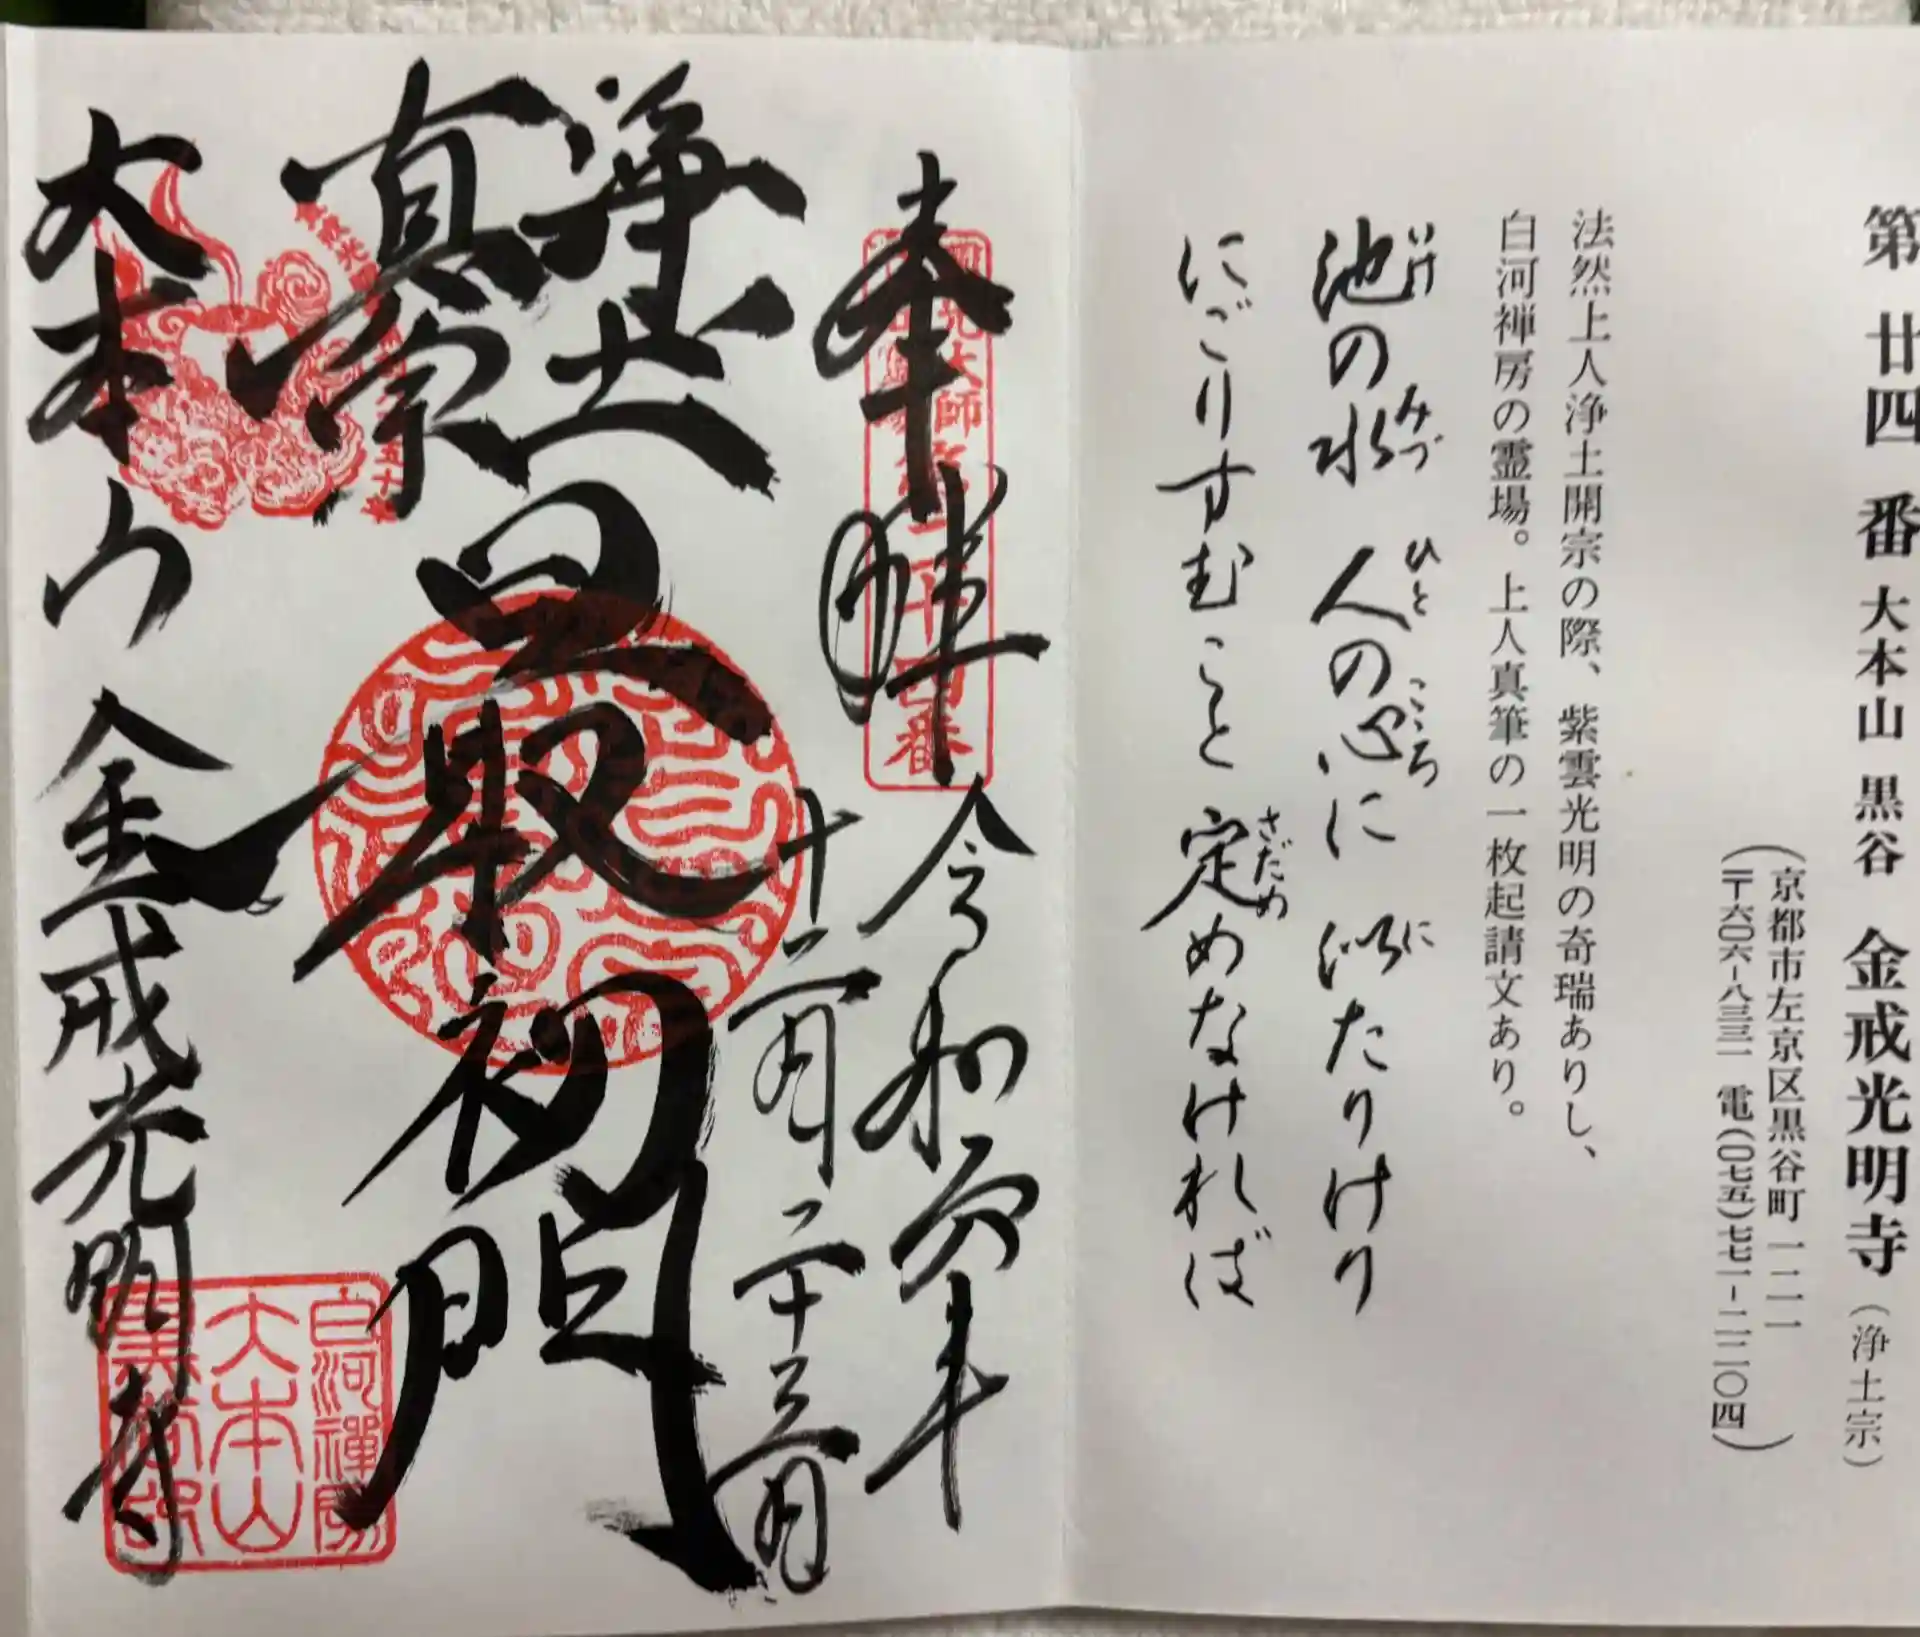 第廿四番 大本山 黒谷 金戒光明寺 (浄土宗)
(京都市左京区黒谷町一二一
〒六〇六-八三三一 電(〇七五)七七一-二二〇四)
法然上人浄土開宗の際、紫雲光明の奇瑞ありし、
白河禅房の霊場。上人真筆の一枚起請文あり。
池の水 人の心に 似たりけり
いけ みづ ひと こころ に
にごりすむこと 定めなければ
さだめ
奉拝 令和四年
十二月二十三日
浄土
真宗
最初門
大本山 金戒光明寺
白河禪房
大本山
黒谷